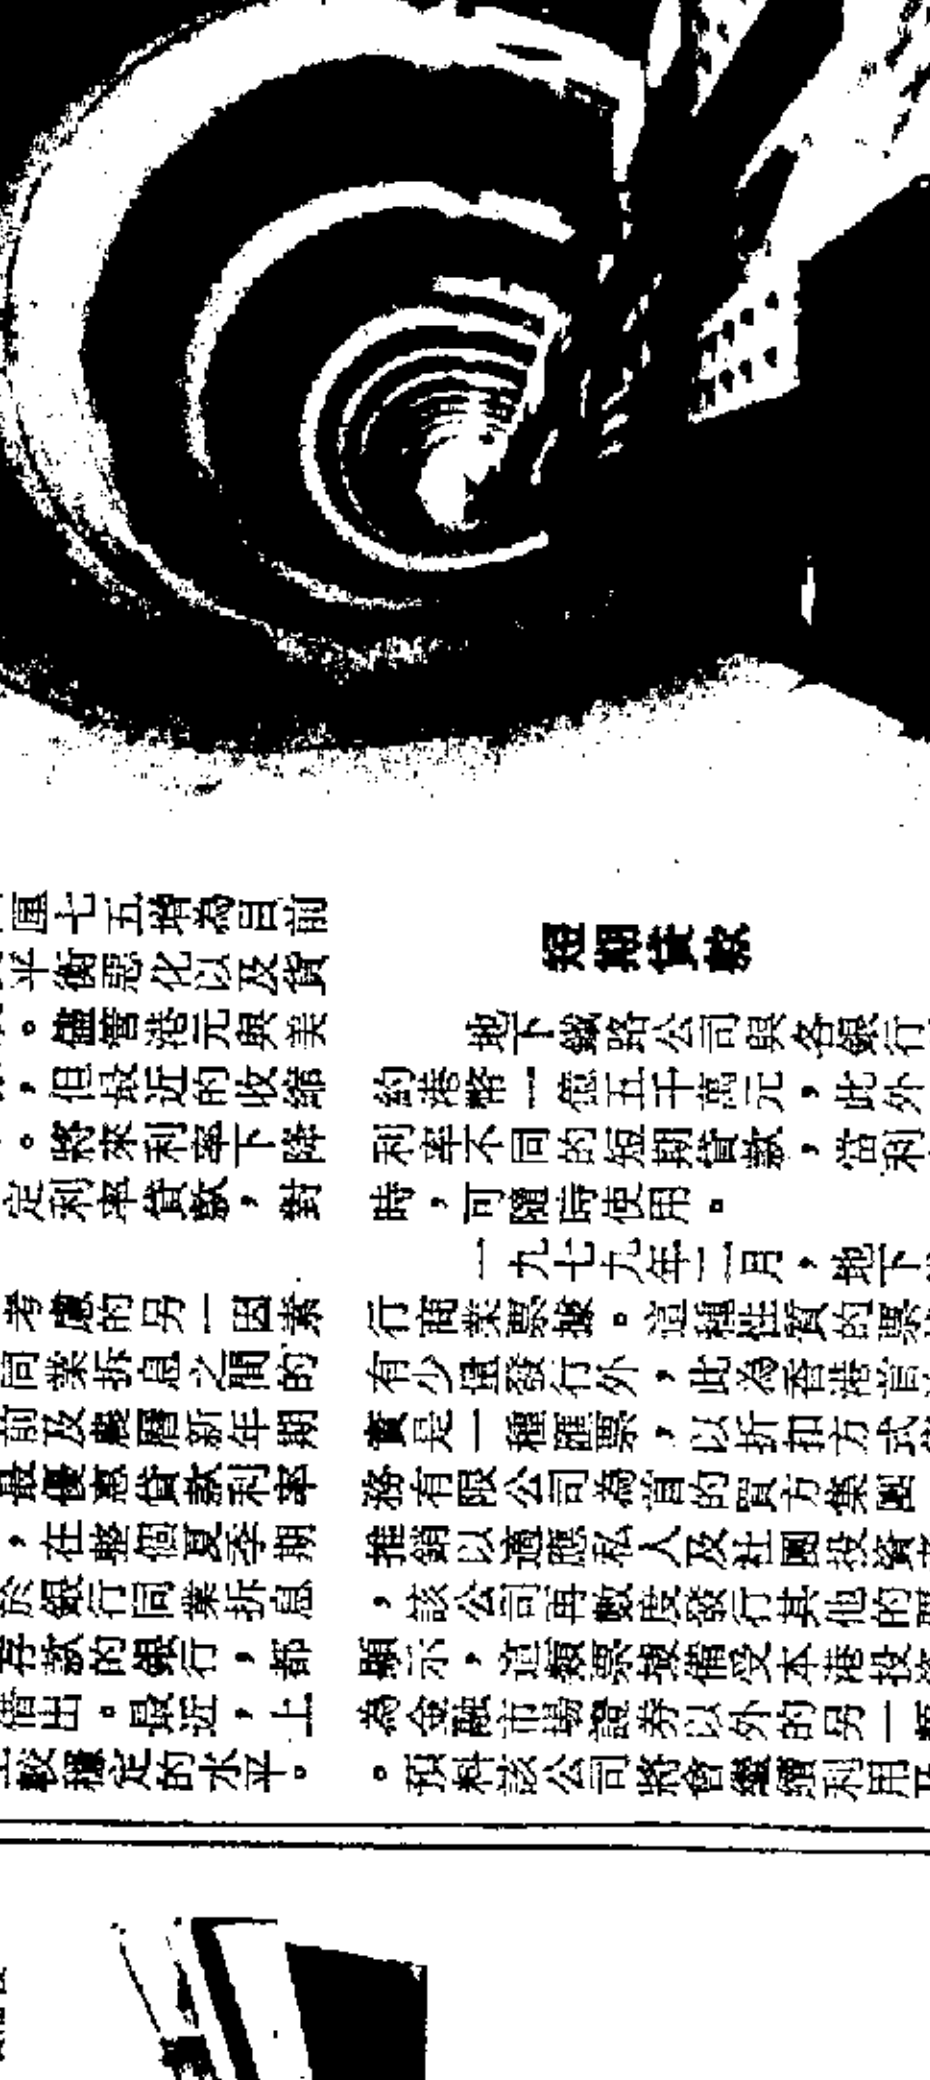 匯七五將為目前
平衡惡化以及貨
。儘管港元與美
，但最近的收縮
。將來利率下降
定利率貸款，對
考慮的另一因素
同業拆息之間的
前及農曆新年期
最優惠貸款利率
，在整個夏季期
於銀行同業拆息
存款的銀行，都
借出。最近，上
較穩定的水平。
短期貸款
地下鐵路公司與各銀行
約港幣一億五千萬元，此外
利率不同的短期貸款，當利
時，可隨時使用。
一九七九年二月，地下
行商業票據。這種性質的票
有少量發行外，此為香港首
實是一種匯票，以折扣方式
務有限公司為首的買方集團
推銷以適應私人及社團投資
，該公司再數度發行其他的
顯示，這類票據備受本港投資
為金融市場證券以外的另一類
。預料該公司將會繼續利用